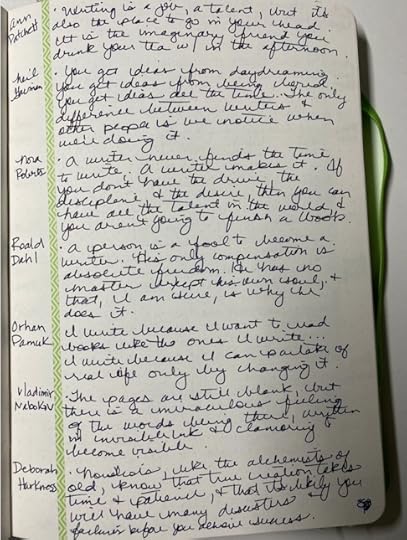 Ann Patchett
· Writing is a job, a talent, but it's
also the place to go in your head.
It is the imaginary friend you
drink your tea w/ in the afternoon.
Neil Gaiman
· You get ideas from daydreaming.
You get ideas from being bored.
You get ideas all the time. The only
difference between writers &
other people is we notice when
we're doing it.
Nora Roberts
· A writer never finds the time
to write. A writer makes it. If
you don't have the drive, the
discipline & the desire, then you can
have all the talent in the world, &
you aren't going to finish a book.
Roald Dahl
· A person is a fool to become a
writer. His only compensation is
absolute freedom. He has no
master except his own soul, &
that, I am sure, is why he
does it.
Orhan Pamuk
I write because I want to read
books like the ones I write...
I write because I can partake of
real life only by changing it.
Vladimir Nabokov
· The pages are still blank, but
there is a miraculous feeling
of the words being there, written
in invisible ink & clamoring to
become visible.
Deborah Harkness
· like the alchemists of
old, know that true creation takes
time & patience, & that it's likely you
will have many disasters &
failures before you achieve success.